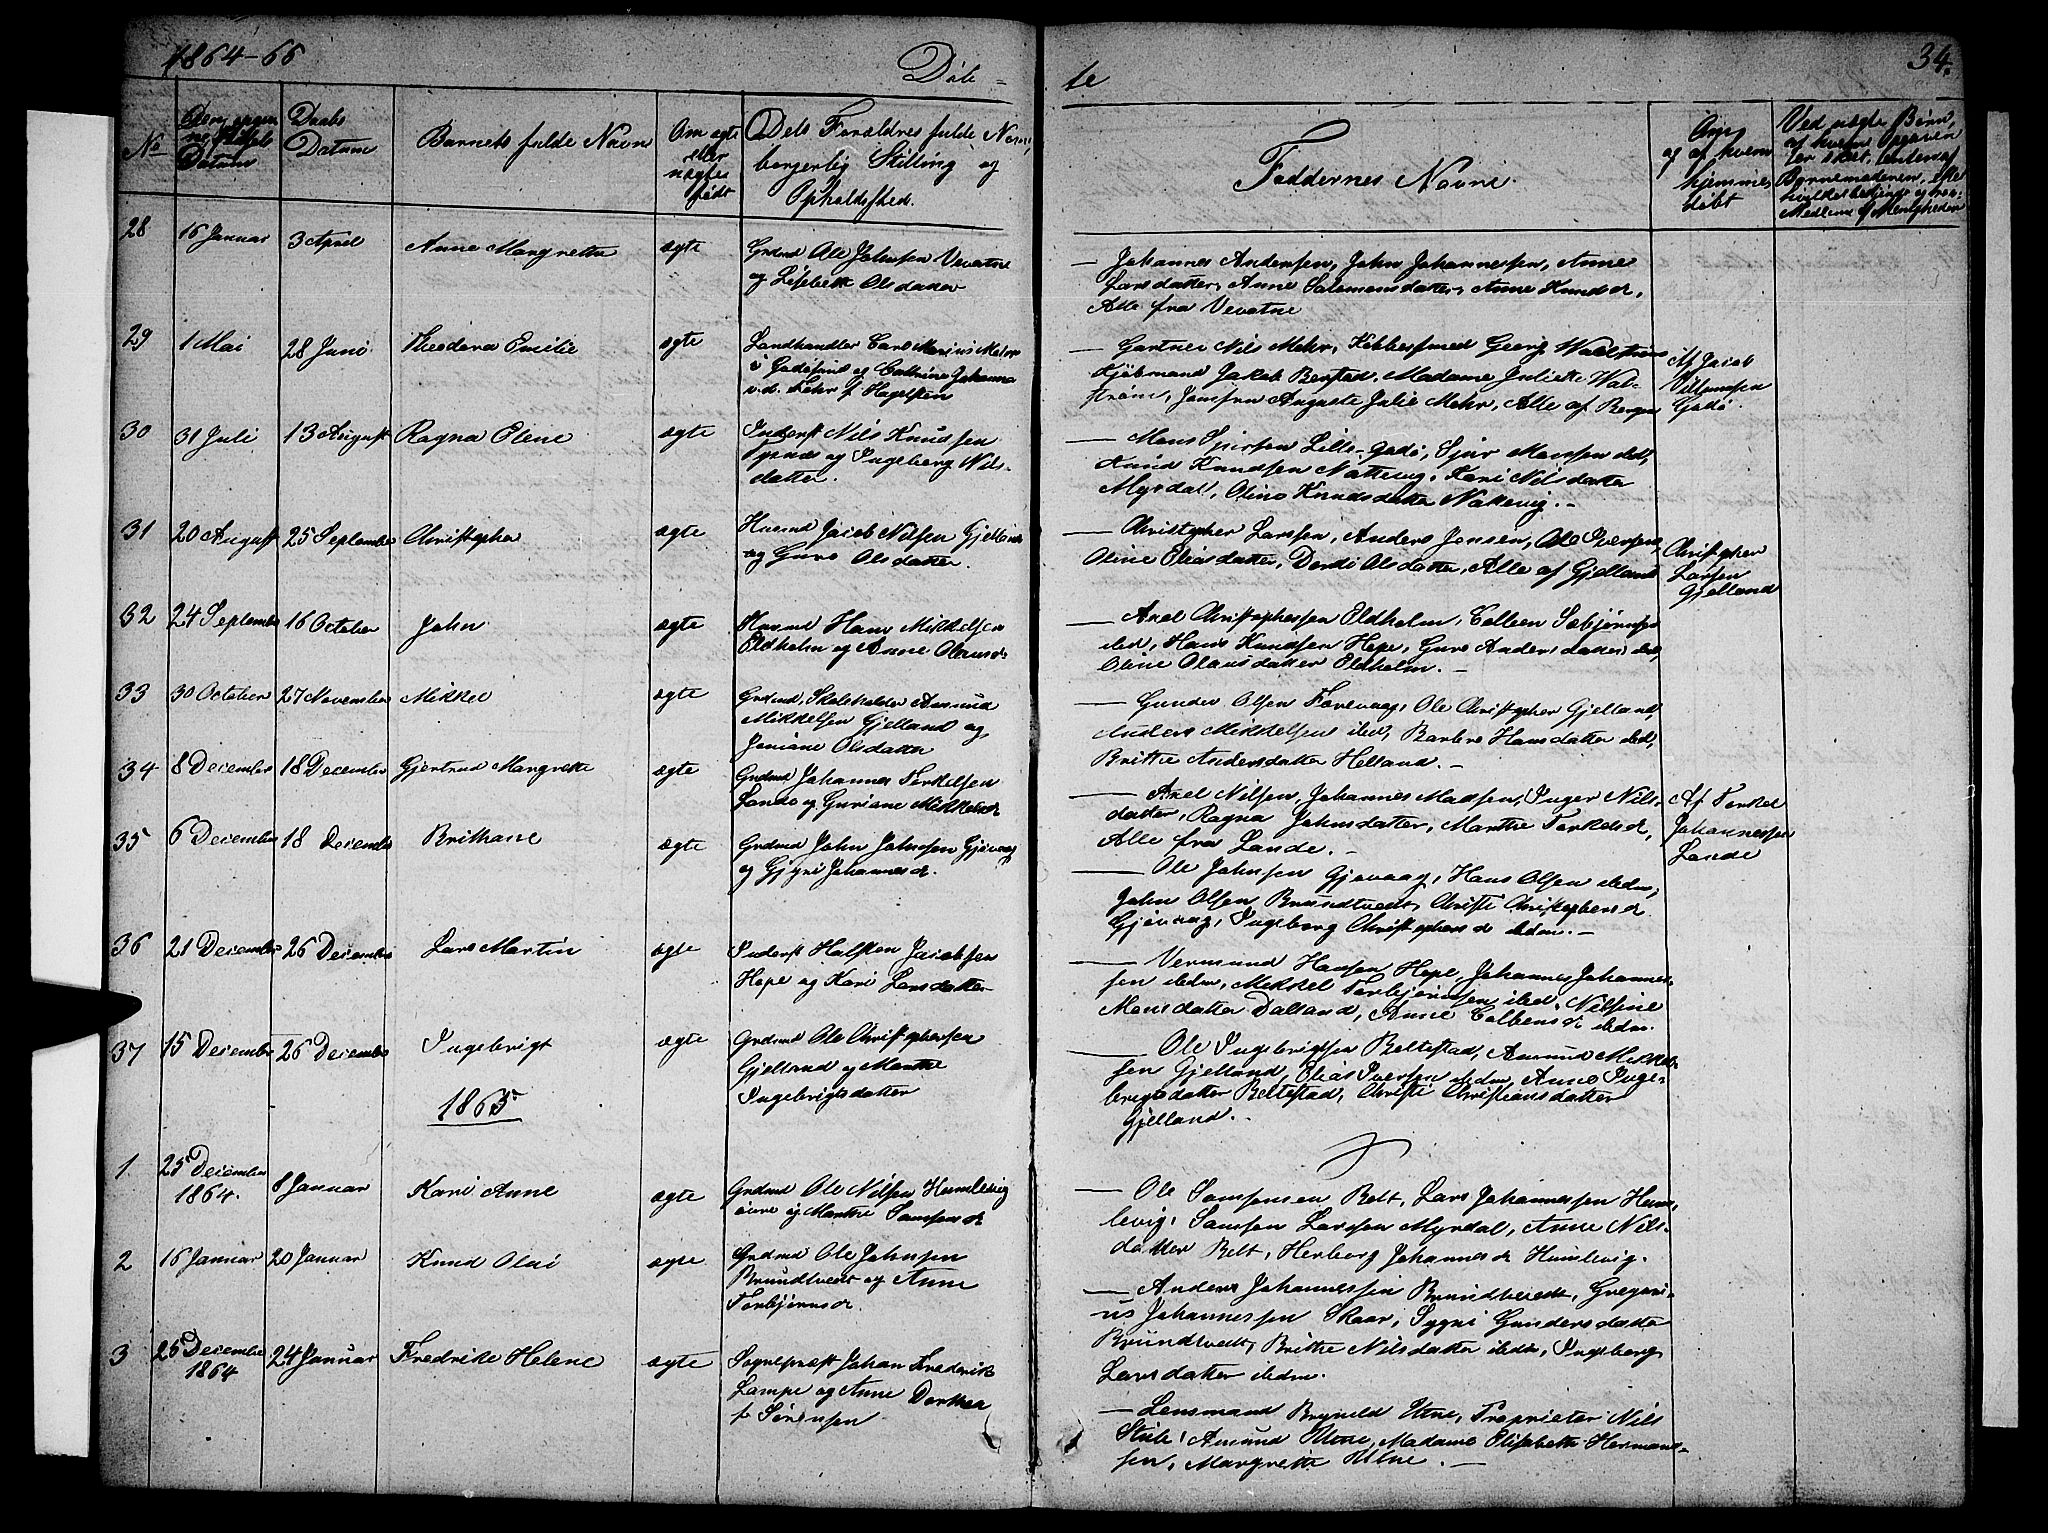 1864-65
Döb-
te
34.
No
Datum
Daabs
Datum
Barnets fulde Navn
Om ægte
eller
uægte
født
Dets Forældres fulde Navn,
borgerlig Stilling og
Opholdsted.
Faddernes Navne.
Om
og af hvem
hjemme
døbt
Ved uægte Børn,
af hvem Opgaven
er skeet, enten af
Barnemoderen, eller
28
16 Januar
3 April
Anne Margrethe
ægte
Grdmd Ole Johnsen Vevatne
og Lisebeth Olsdatter
— Johannes Andersen, John Johannessen, Anne
Larsdatter, Anne Salomonsdatter, Anne Knudsdr,
Alle fra Vevatne
29
1 Mai
28 Juni
Theodora Emilie
ægte
Landhandler Carl Marius Mehr
i Godøsund og Cathrine Johanna
f. Hagelsten
— Gartner Nils Mehr, Georg Walstrøm
Kjøbmand Jakob Berstad, Madame Juliette Wal-
strøm, Jomfru Auguste Julie Mehr, Alle af Bergen
Af Jacob
Villumsen
Godø.
30
31 Juli
13 August
Ragna Oline
ægte
Inderst Nils Knudsen
Tysnæs og Ingeborg Nils-
datter.
— Mons Sjursen Lille-Godø, Sjur Monsen ibd,
Knud Knudsen Nattevig, Kari Nilsdatter
Myrdal, Oline Knudsdatter Nattevig. -
31
20 August
25 September
Christopher
ægte
Husmd Jacob Nilsen Gjelland
og Guro Olsdatter.
— Christopher Larsen, Anders Jensen, Ole Iversen,
Oline Eliasdatter, Dorthe Olsdatter, Alle af Gjelland
Christopher
Larsen
Gjelland
32
24 September
16 October
John
ægte
Husmd Hans Mikkelsen
Eldholm og Anne Olausdr
— Axel Christophersen Eldholm, Colben Sæbjørnsen
ibed, Hans Knudsen Hope, Guro Andersdatter ibd,
Oline Olausdatter Eldholm. -
33
30 October
27 November
Mikkel
ægte
Grdmd, Skoleholder Amund
Mikkelsen Gjelland og
Joniane Olsdatter
— Gunder Olsen Forevaag, Ole Christopher Gjelland,
Anders Mikkelsen ibed, Barbro Hansdatter ibd,
Brithe Andersdatter Helland. -
34
8 December
18 December
Gjertrud Margrethe
ægte
Grdmd Johannes Torkelsen
Lande og Guriane Mikkelsdr
— Axel Nilsen, Johannes Madsen, Inger Nils-
datter, Ragna Johnsdatter, Marthe Torkelsdr,
Alle fra Lande. -
Af Torkel
Johannessen
Lande
35
6 December
18 December
Brithane
ægte
Grdmd John Johnsen Gjøvaag
og Gjyri Johannesdr.
— Ole Johnsen Gjøvaag, Hans Olsen ibdm,
John Olsen Brundtvedt, Christi Christophersdr
Gjøvaag, Ingeborg Christophersdr ibdm. -
36
21 December
26 December
Lars Martin
ægte
Inderst Halsten Jacobsen
Hope og Kari Larsdatter
— Vermund Hansen Hope, Johannes Johannes-
sen ibdm, Mikkel Torbjørnsen ibed, Nilsine
Monsdatter Dalland, Anne Colbensdr ibdm.
37
15 December
26 December
Ingebrigt
ægte
Grdmd Ole Christophersen
Gjelland og Marthe
Ingebrigtsdatter
— Ole Ingebrigtsen Beltestad, Amund Mikkel-
sen Gjelland, Elias Iversen ibdm, Anne Inge-
brigtsdatter Beltestad, Christi Christiansdatter
Gjelland. -
1865
1
25 December
1864.
8 Januar
Kari Anne
ægte
Grdmd Ole Nilsen Humlevig
øvre og Marthe Samsonsdr
— Ole Samsonsen Belt, Lars Johannessen Hum-
levig, Samson Larsen Myrdal, Anne Nils-
datter Belt, Herborg Johannesdr Humlevig.
2
16 Januar
20 Januar
Knud Olai
ægte
Grdmd Ole Johnsen
Brundtvedt og Anne
Torbjørnsdr.
— Anders Johannessen Brundtvedt, Gregori-
us Johannessen Skaar, Sygni Gundersdatter
Brundtvedt, Brithe Nilsdatter ibdm, Ingeborg
Larsdatter ibdm.
3
25 December
1864
24 Januar
Fredrike Helene
ægte
Sognepræst Johan Frederik
Lampe og Anne Dorthea
f. Sørensen
— Lensmand Brynild Utne, Proprietær Nils
Amund Utne, Madame Elisabeth Hermand-
sen, Margrethe Utne. -